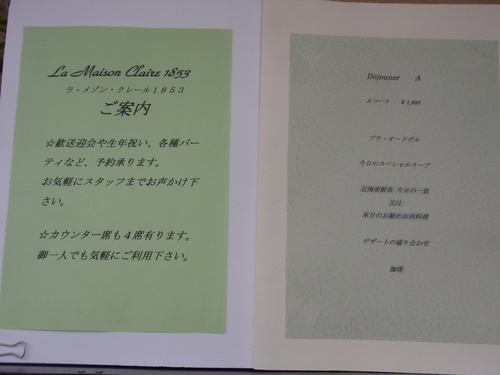 La Maison Claire 1853
ラ・メゾン・クレール１８５３
ご案内
☆歓送迎会や生年祝い、各種パー
ティなど、予約承ります。
お気軽にスタッフまでお声かけ下
さい。
☆カウンター席も４席有ります。
御一人でも気軽にご利用下さい。
Dejeuner A
Aコース ￥1,800
プチ・オードヴル
今日のスペシャルスープ
近海産鮮魚 今日の一皿
又は
本日のお勧めお肉料理
デザートの盛り合わせ
珈琲